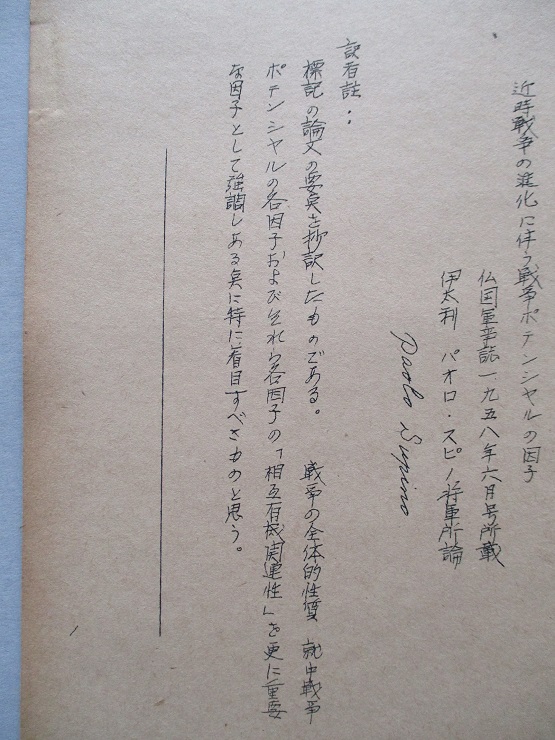 近時戦争の進化に伴う戦争ポテンシャルの因子
仏国軍事誌一九五八年六月号所載
伊太利 パオロ・スピノ将軍所論
Paolo Supino
訳者註:
標記の論文の要点を抄訳したものである。 戦争の全体的性質 就中戦争
ポテンシャルの各因子およびそれら各因子の「相互有機関連性」を更に重要
な因子として強調しある点に特に着目すべきものと思う。